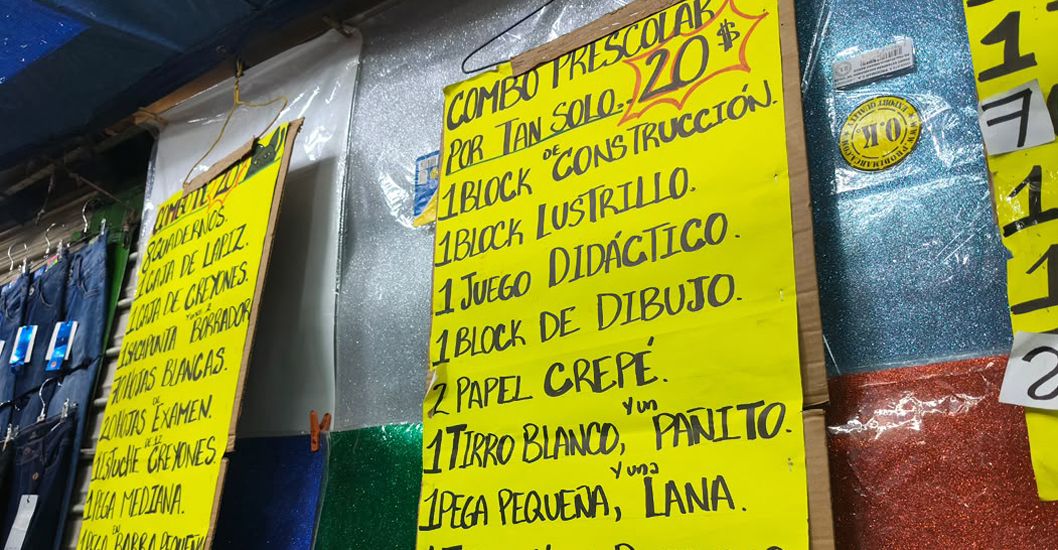 8 CUADERNOS.
1 CAJA DE LAPIZ.
1 CAJA DE CREYONES.
1 SACAPUNTA y un BORRADOR
HOJAS BLANCAS.
20 HOJAS DE EXAMEN.
1 ESTUCHE CREYONES
1 PEGA MEDIANA.
1 PEGA EN BARRA PEQUEÑA
COMBO PRESCOLAR
POR TAN SOLO. 20$
1 BLOCK DE CONSTRUCCIÓN.
1 BLOCK LUSTRILLO.
1 JUEGO DIDÁCTICO.
1 BLOCK DE DIBUJO.
2 PAPEL CREPÉ.
1 TIRRO BLANCO, y un PAÑITO.
1 PEGA PEQUEÑA, y una LANA.
O.K.
EXPORT QUALITY
1
7
1
1